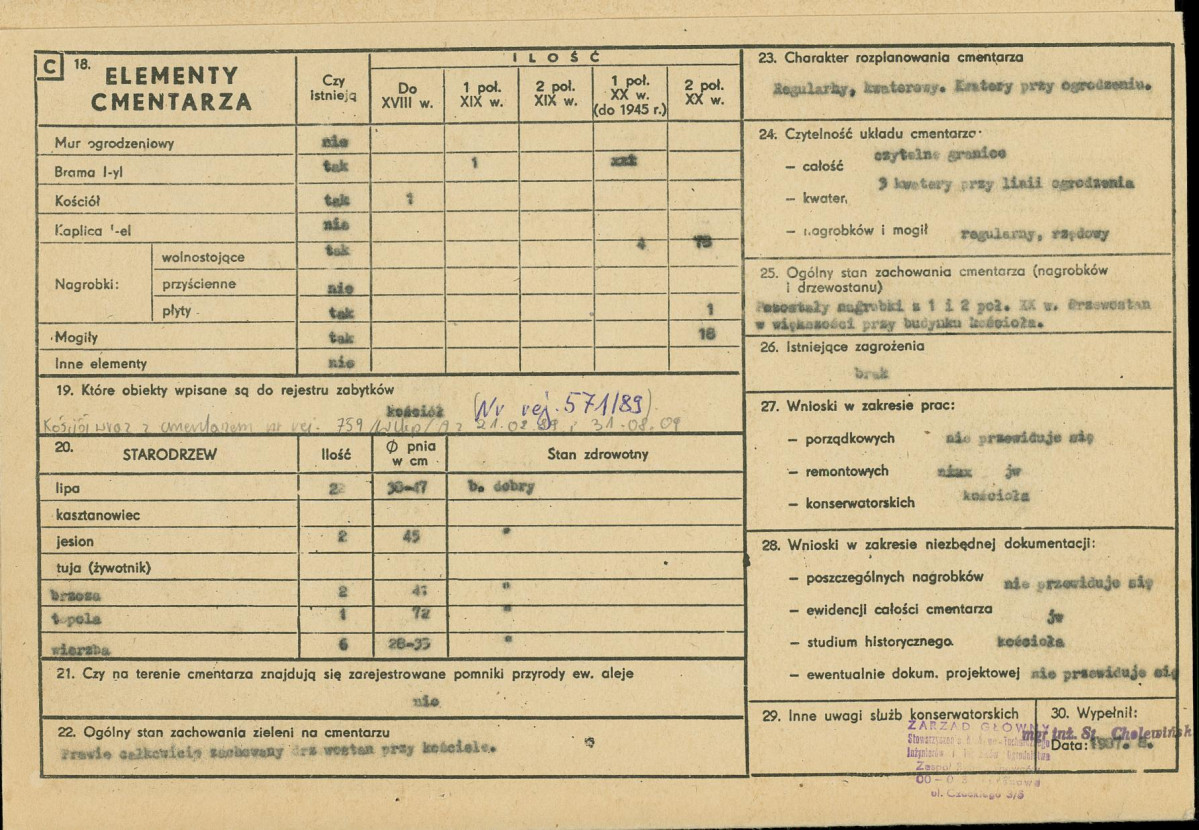 C 18. ELEMENTY CMENTARZA
Czy istnieją
ILOŚĆ
Do XVIII w.
1 poł. XIX w.
2 poł. XIX w.
1 poł. XX w. (do 1945 r.)
2 poł. XX w.
Mur ogrodzeniowy nie
Brama I-yl tak 1 xxx
Kościół tak 1
Kaplica -el nie
Nagrobki:
wolnostojące tak 4 78
przyścienne nie
płyty tak 1
Mogiły tak 18
Inne elementy nie
19. Które obiekty wpisane są do rejestru zabytków
kościół (Nr rej. 571/89)
Kościół wraz z cmentarzem nr rej. 759 /Wlkp/A z 21.02.89 i 31.08.09
20. STARODRZEW Ilość Ø pnia w cm Stan zdrowotny
lipa 22 30-47 b. dobry
kasztanowiec
jesion 2 45 "
tuja (żywotnik)
brzoza 2 "
topola 1 72 "
wierzba 6 28-35 "
21. Czy na terenie cmentarza znajdują się zarejestrowane pomniki przyrody ew. aleje
nie
22. Ogólny stan zachowania zieleni na cmentarzu
Prawie całkowicie zachowany drz wostan przy kościele.
23. Charakter rozplanowania cmentarza
Regularny, kwaterowy. Kwatery przy ogrodzeniu.
24. Czytelność układu cmentarza
— całość czytelne granice
— kwater, 3 kwatery przy linii ogrodzenia
— nagrobków i mogił regularny, rzędowy
25. Ogólny stan zachowania cmentarza (nagrobków i drzewostanu)
Pozostały nagrobki z 1 i 2 poł. XX w. Drzewostan
w większości przy budynku kościoła.
26. Istniejące zagrożenia
brak
27. Wnioski w zakresie prac:
— porządkowych nie przewiduje się
— remontowych jw
— konserwatorskich kościoła
28. Wnioski w zakresie niezbędnej dokumentacji:
— poszczególnych nagrobków nie przewiduje się
— ewidencji całości cmentarza jw
— studium historycznego kościoła
— ewentualnie dokum. projektowej nie przewiduje się
29. Inne uwagi służb konserwatorskich
ZARZĄD GŁÓWNY
ul. Czackiego 3/5
30. Wypełnił:
mgr inż. St. Cholewiński
Data: 1987.